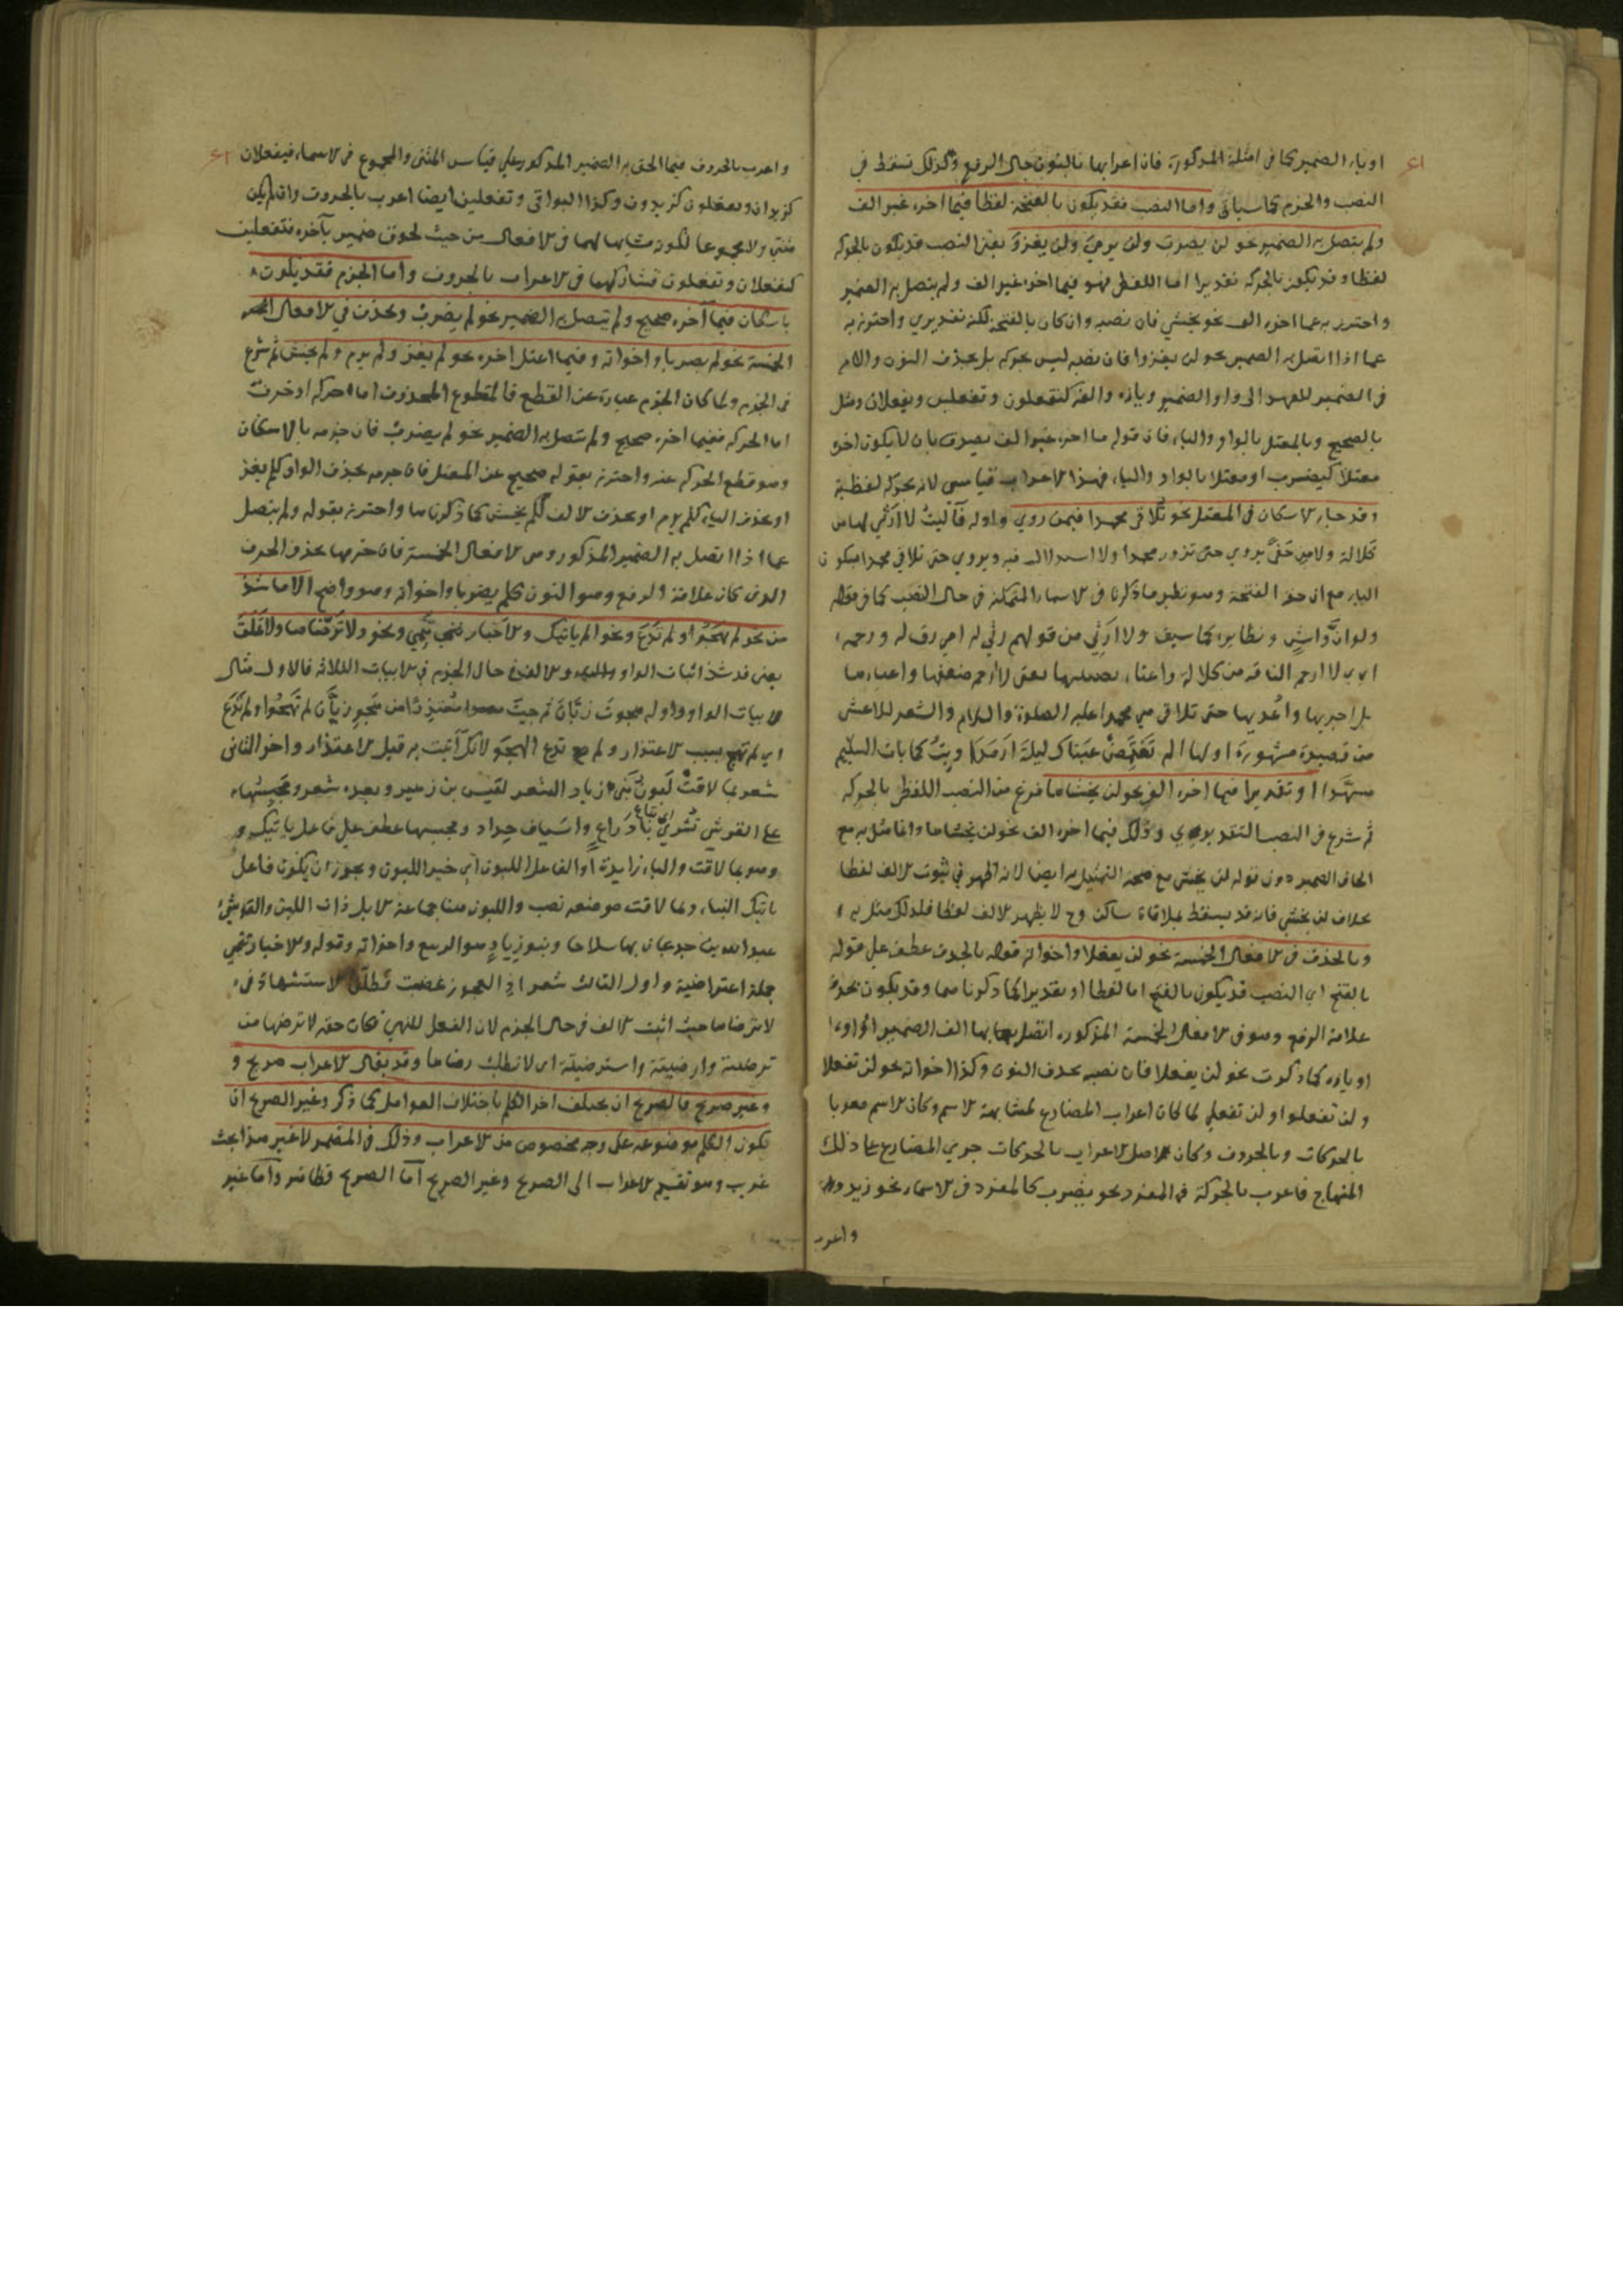 او ياء الضمير كما فى امثلة المذكورة فان اعرابها بالنون حال الرفع وكذلك تسقط في
النصب والجزم كما سياتى واما النصب فقد يكون بالفتحة لفظا فيما اخره غير الف
ولم يتصل به الضمير نحو لن يضرب ولن يرمي ولن يغزو يعنى النصب قد يكون بالحركة
لفظا وقد يكون بالحركة تقديرا اما اللفظى فهو فيما اخره غير الف ولم يتصل به الضمير
واحترز به عما اخره الف نحو يخشى فان نصبه وان كان بالفتحة لكنه تقديري واحترز به
عما اذا اتصل به الضمير نحو لن يغزوا فان نصبه ليس بحركة بل بحذف النون واللام
فى الضمير للعهد الى واو الضمير ويائه والفه كتفعلون وتفعلين ويفعلان ومثل
بالصحيح وبالمعتل بالواو والياء فان قوله ما اخره غير الف يصدق بان لا يكون اخره
معتلا كيضرب او معتلا بالواو والياء فهذا الاعراب قياسي لانه بحركة لفظية
وقد جاء الاسكان فى المعتل نحو تلاقى محمدا فيمن روي واوله فآليت لا ارثي لها من
كلالة ولا من حفى يروي حتى تزور محمدا ولا استدلال فيه ويروي حتى تلاقي محمدا بسكون
الياء مع ان حقه الفتحة وهو نظير ما ذكرنا فى الاسماء المتمكنة فى حال النصب كما فى قوله
ولو ان واش ونظايره كما سبق ولا ارثي من قولهم رثي له اي رق له ورحمه
اي لا ارحم الناقة من كلالة واعياء يصيبها يعنى لا ارحم ضعفها واعياءها
بل اجريها واعديها حتى تلاقى بي محمدا عليه الصلوة والسلام والشعر للاعشى
من قصيدة مشهورة اولها الم تغتمض عيناك ليلة ارمدا وبت كما بات السليم
مسهدا او تقديرا فيما اخره الف نحو لن يخشاها فرغ من النصب اللفظى بالحركة
ثم شرع فى النصب التقديري وذلك فيما اخره الف نحو لن يخشاها وانما مثل به مع
الحاق الضمير دون قوله لن يخشى مع صحة التمثيل به ايضا لانه اظهر في ثبوت الالف لفظا
بخلاف لن يخشى فانه قد يسقط بملاقاة ساكن وح لا يظهر الالف لفظا فلذلك مثل به
وبالحذف فى الافعال الخمسة نحو لن يفعلا واخواته قوله بالحذف عطف على قوله
بالفتح اي النصب قد يكون بالفتح اما لفظا او تقديرا كما ذكرناهما وقد يكون بحذف
علامة الرفع وهو فى الافعال الخمسة المذكورة اتصل بها الف الضمير او واوه
او ياؤه كما ذكرت نحو لن يفعلا فان نصبه بحذف النون وكذا اخواته نحو لن تفعلا
ولن تفعلوا ولن تفعلي لما كان اعراب المضارع لمشابهة الاسم وكان الاسم معربا
بالحركات وبالحروف وكان الاصل الاعراب بالحركات جري المضارع على ذلك
المنهاج فاعرب بالحركة فى المفرد نحو يضرب كالمفرد فى الاسماء نحو زيد
واعرب
واعرب بالحروف فيما الحق به الضمير المذكور على قياس المثنى والمجموع فى الاسماء فيفعلان
كزيدان ويفعلون كزيدون وكذا البواقى وتفعلين ايضا اعرب بالحروف وان لم يكن
مثنى ولا مجموعا لكونه مشابها لهما فى الافعال من حيث لحوق ضمير بآخره فتفعلين
كيفعلان وتفعلون فشاركهما فى الاعراب بالحروف واما الجزم فقد يكون
باسكان فيما آخره صحيح ولم يتصل به الضمير نحو لم يضرب وبحذف في الافعال
الخمسة نحو لم يضربا واخواته وفيما اعتل اخره نحو لم يغز ولم يرم ولم يخش ثم شرع
فى الجزم ولما كان الجزم عبارة عن القطع فالمقطوع المحذوف اما حركة او حرف
اما الحركة ففيما اخره صحيح ولم يتصل به الضمير نحو لم يضرب فان جزمه بالاسكان
وهو قطع الحركة عنه واحترز بقوله صحيح عن المعتل فان جزمه بحذف الواو كلم يغز
او بحذف الياء كلم يرم او بحذف الالف كلم يخش كما ذكرناها واحترز بقوله ولم يتصل
عما اذا اتصل به الضمير المذكور وهى الافعال الخمسة فان جزمها بحذف الحرف
الذى كان علامة الرفع وهو النون كلم يضربا واخواته وهو واضح الا ما شذ
من نحو لم تهجو او لم تدع ونحو الم ياتيك والاخبار تنمي ونحو ولا ترضاها ولا تملق
يعنى قد شذ اثبات الواو والياء والالف فى حال الجزم فى الابيات الثلاثة فالاول مثال
لاثبات الواو واوله هجوت زبان ثم جيت معتذرا من هجو زبان لم تهجو او لم تدع
اي لم تهج بسبب الاعتذار ولم تدع الهجو لانك آتيت به قبل الاعتذار واخر الثانى
شعر بما لاقت لبون بنى زياد الشعر لقيس بن زهير وبعده شعر ومحبسها
على القرشي تشري بادراع واسياف حداد ومحبسها عطف على فاعل ياتيك
وهو بما لاقت والباء زايدة او الفاعل اللبون اي خبر اللبون ويجوز ان يكون فاعل
ياتيك النباء وبما لاقت موضعه نصب واللبون هنا جماعة الابل ذات اللبن والقرشي
عبد الله بن جدعان بها سلاحا وبنو زياد هو الربيع واخواته وقوله والاخبار تنمى
جملة اعتراضية واول الثالث شعر اذا العجوز غضبت فطلق الاستشهاد فى
لا ترضاها حيث اثبت الالف فى حال الجزم لان الفعل للنهي فكان حقه لا ترضها من
ترضيته وارضيته واسترضيته اي لا تطلب رضاها وقد يقال الاعراب صريح و
وغير صريح فالصريح ان يختلف اخر الكلم باختلاف العوامل كما ذكر وغير الصريح ان
تكون الكلم موضوعة على وجه مخصوص من الاعراب وذلك فى المضمر لا غير هذا بحث
غريب وهو تقسيم الاعراب الى الصريح وغير الصريح اما الصريح فظاهر واما غير